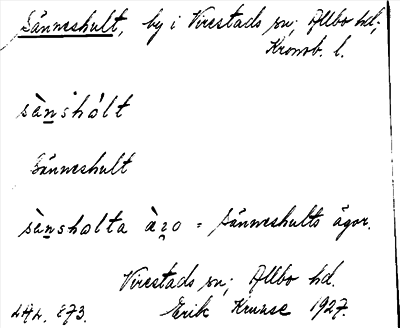 Sänneshult, by i Virestads sn; Allbo hd;
Kronob. l.
sànshólt
Sänneshult
sànsholta àzo = Sänneshults ägor.
Virestads sn; Allbo hd.
Erik Kruuse 1927.